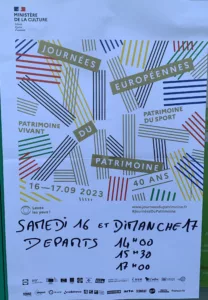 MINISTÈRE
DE LA CULTURE
JOURNÉES
EUROPÉENNES
PATRIMOINE
DU SPORT
PATRIMOINE
VIVANT
DU
PATRIMOINE
16—17.09 2023
40 ANS
SAMEDI 16 ET DIMANCHE 17
DEPARTS 14H00
15H30
17H00